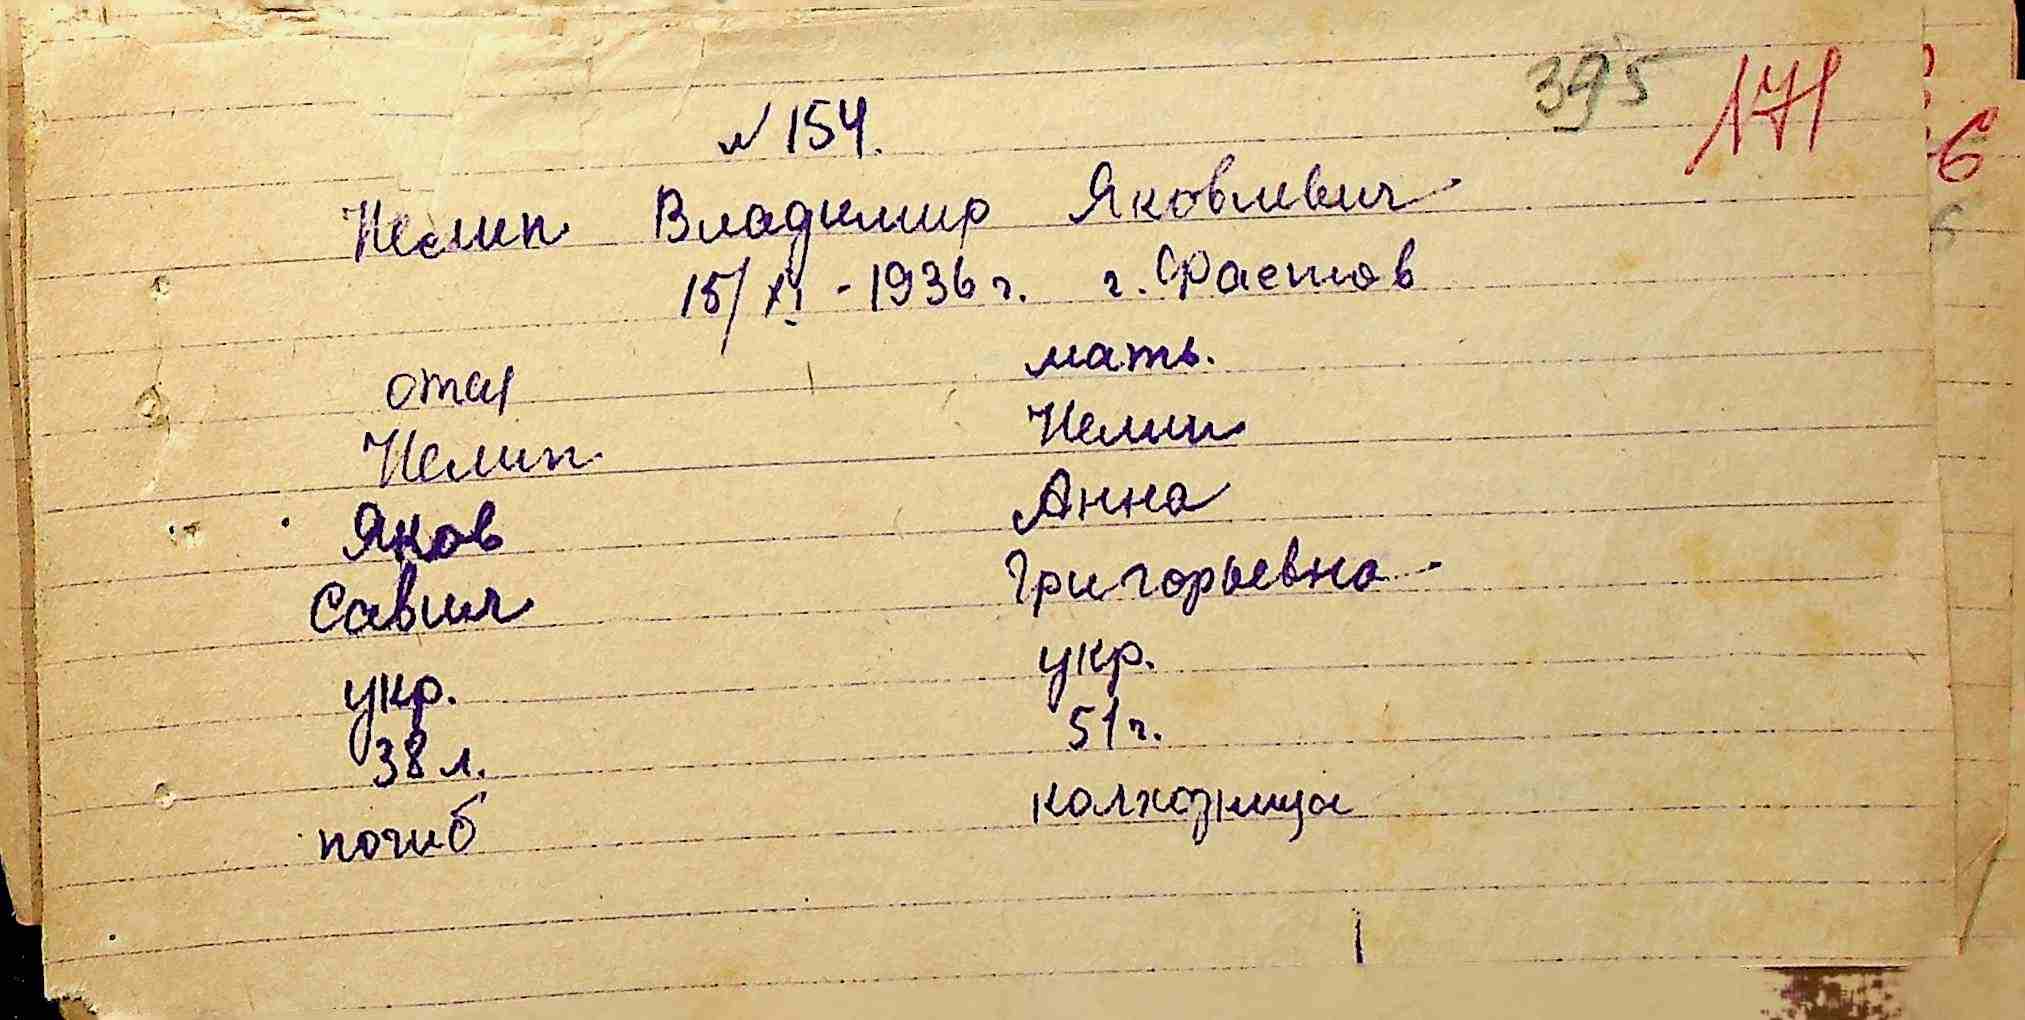 395 171
6
№ 154.
Нелип Владимир Яковлевич
15/XI - 1936 г. г. Фастов
отец мать.
Нелип Нелип
Яков Анна
Савич Григорьевна
укр. укр.
38 л. 51 г.
погиб колхозница